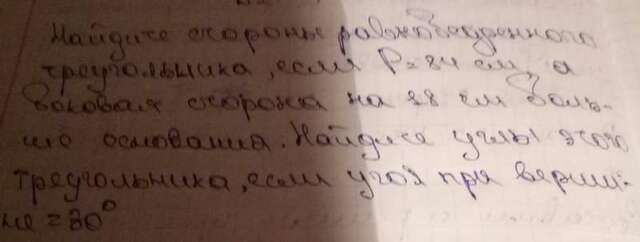 Найдите стороны равнобедренного
треугольника, если P=84 см, а
боковая сторона на 18 см боль-
ше основания. Найдите углы этого
треугольника, если угол при верши-
не =30°